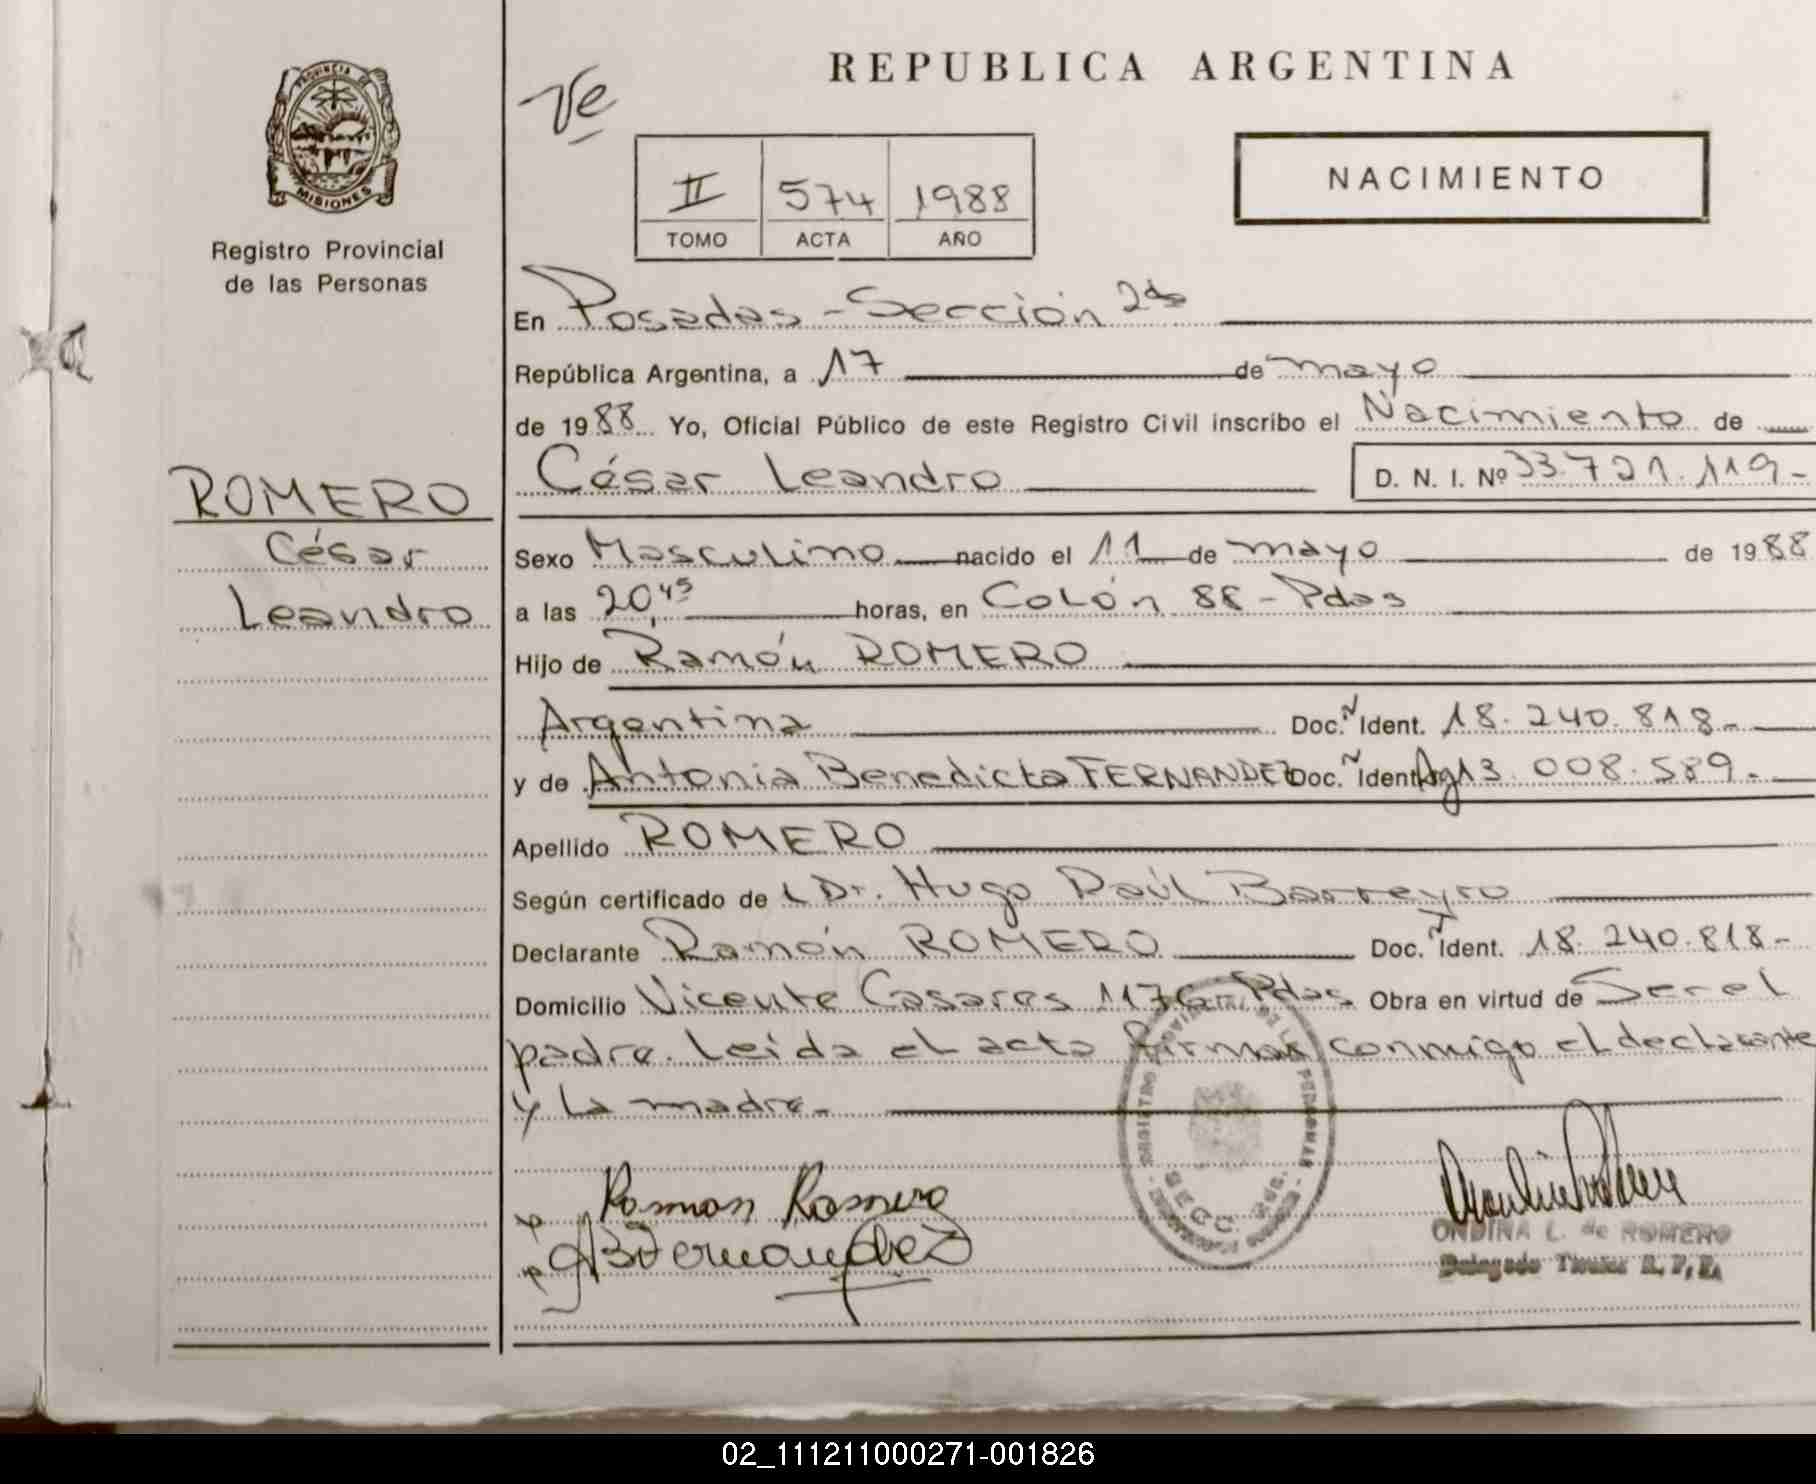 PROVINCIA DE
MISIONES
Registro Provincial
de las Personas
ROMERO
César
Leandro
REPUBLICA ARGENTINA
NACIMIENTO
II 574 1988
TOMO ACTA AÑO
En Posadas - Sección 2da
República Argentina, a 17 de mayo
de 1988 Yo, Oficial Público de este Registro Civil inscribo el Nacimiento de
César Leandro D. N. I. Nº 33.721.119-
Sexo Masculino nacido el 11 de mayo de 1988
a las 20,45 horas, en Colón 88 - Pdas
Hijo de Ramón ROMERO
Argentina Doc. Ident. 18.240.818-
y de Antonia Benedicta FERNANDEZ Doc. Ident. Arg 13.008.589-
Apellido ROMERO
Según certificado de Dr. Hugo Raúl Barreyro
Declarante Ramón ROMERO Doc. Ident. 18.240.818-
Domicilio Vicente Casares 1176 Pdas Obra en virtud de Ser el
padre. Leida el acta firman conmigo el declarante
y la madre.
Ramon Romero
ABFernandez
ONDINA L. de ROMERO
Delegado Titular R. P. P.
02_111211000271-001826